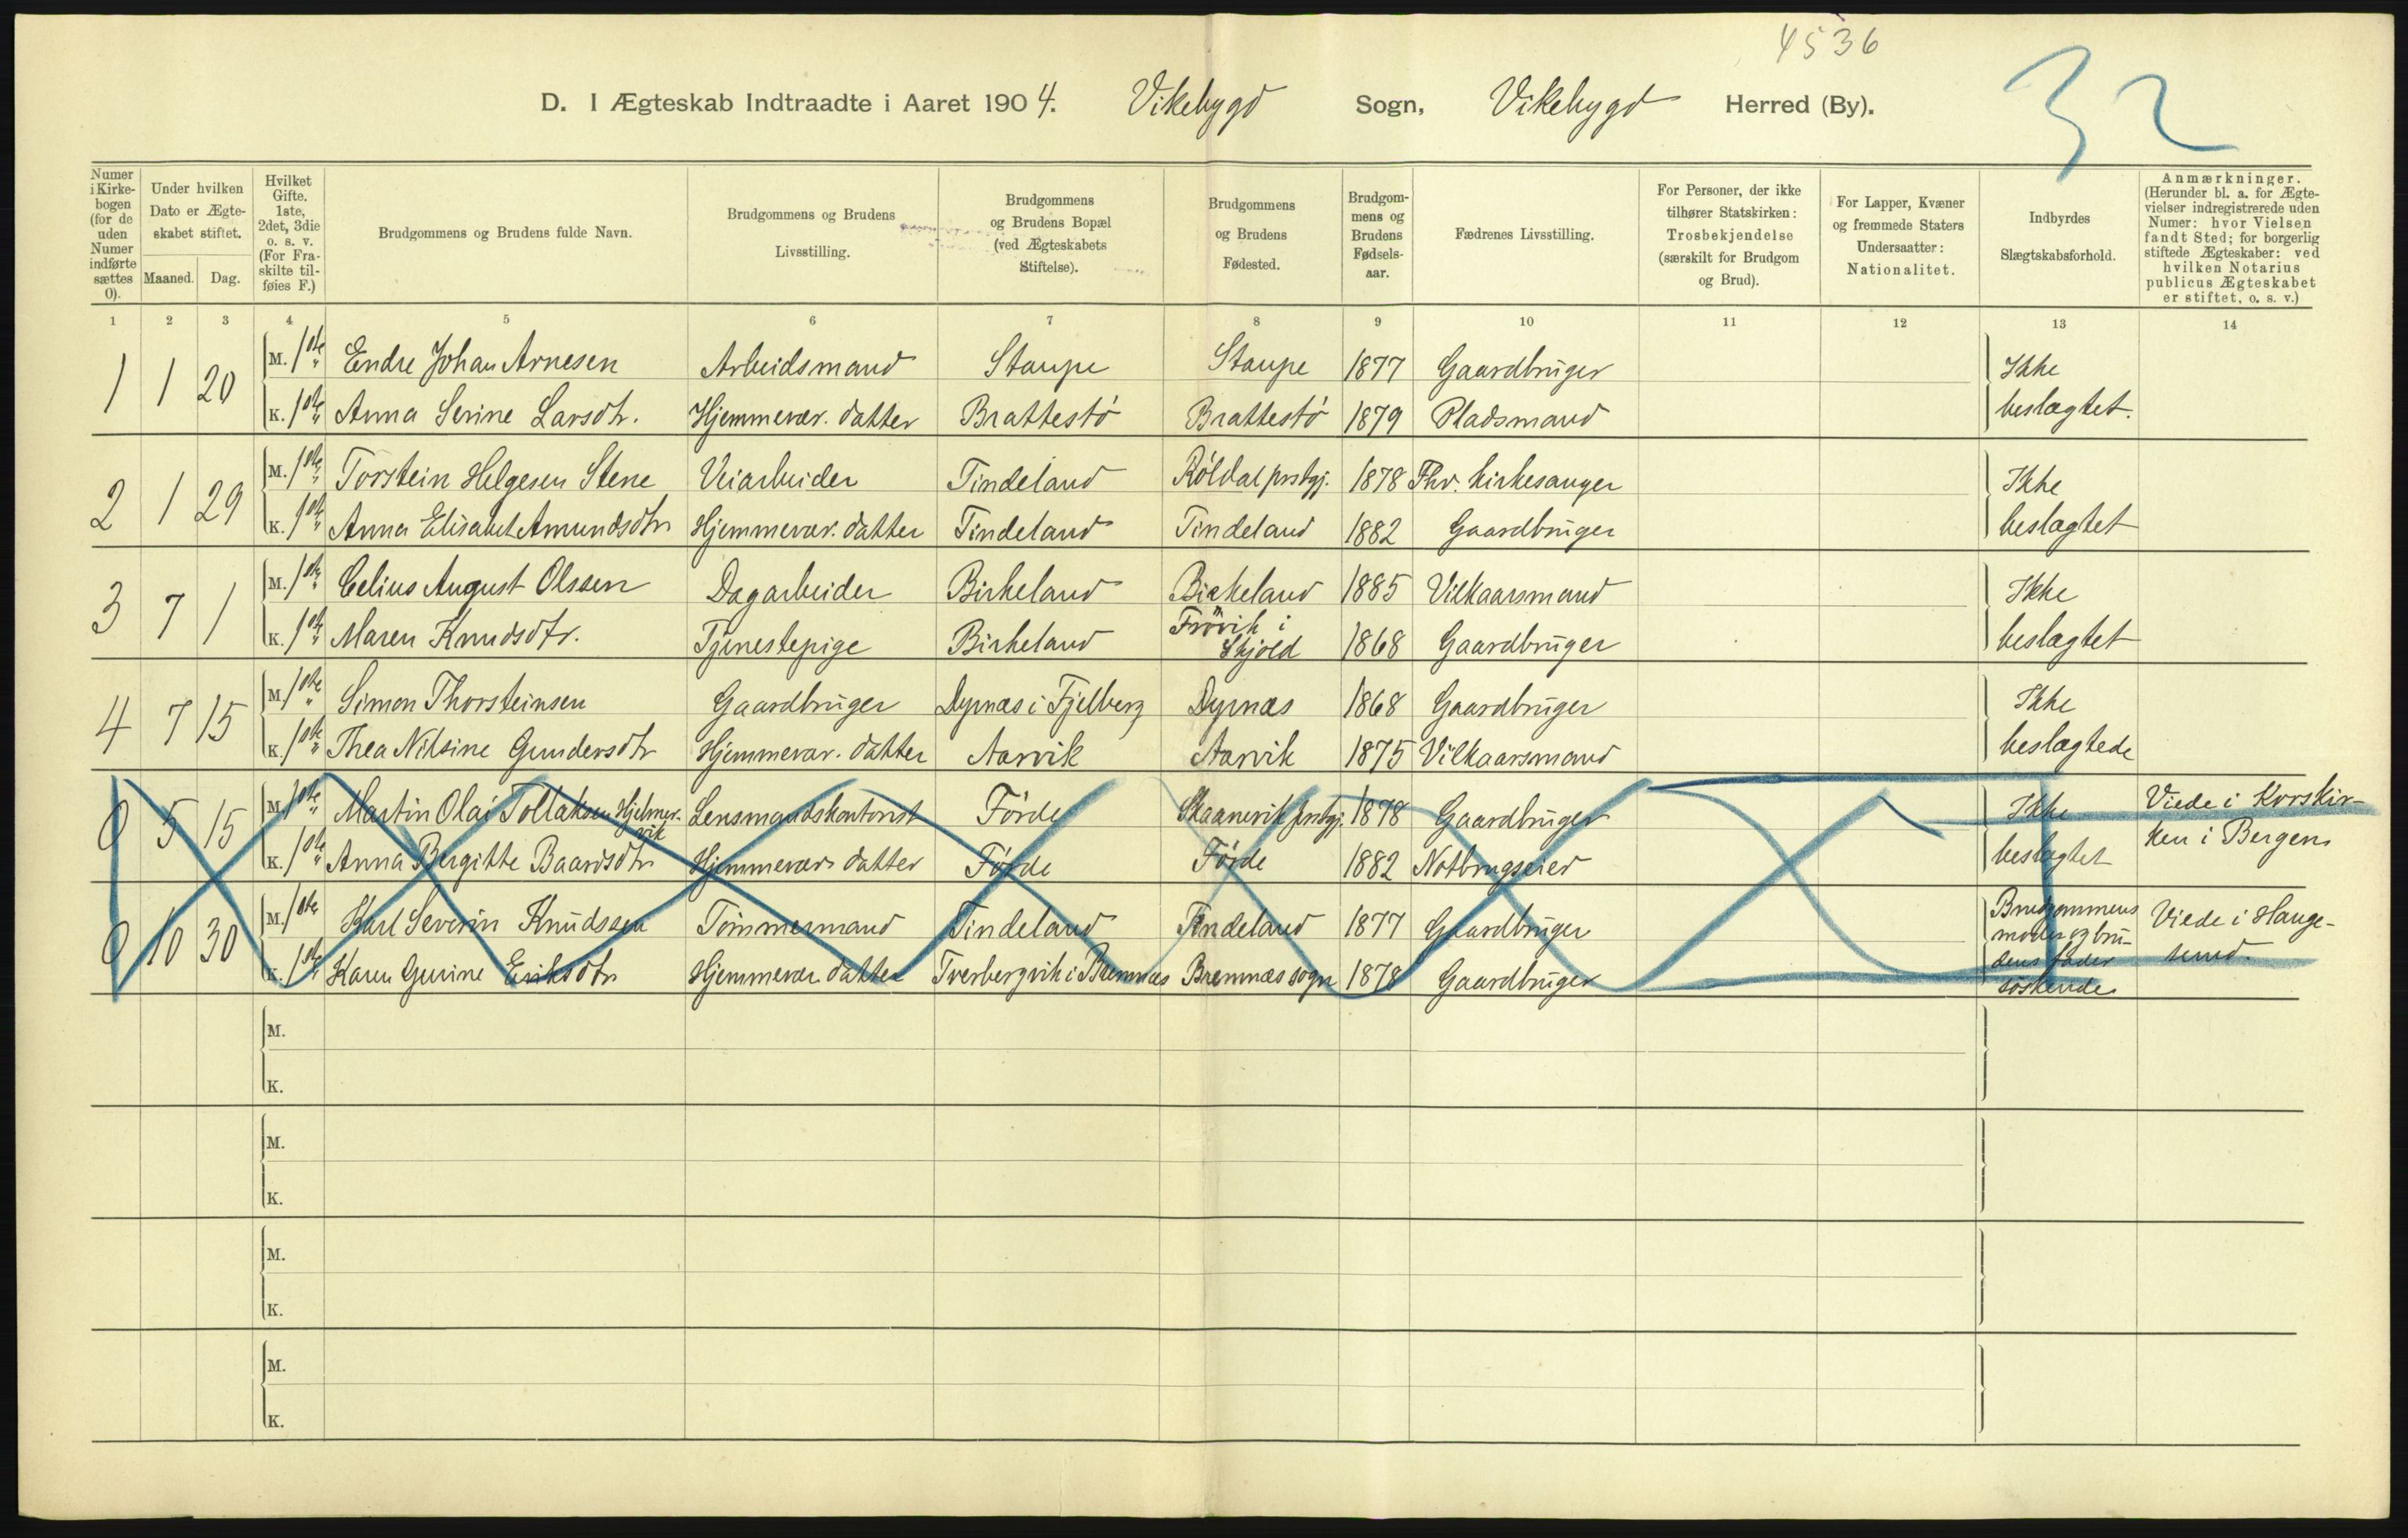 4536
32
D. I Ægteskab Indtraadte i Aaret 1904. Vikebygd Sogn, Vikebygd Herred (By).
Numer i Kirkebogen (for de uden Numer indførte sættes 0).
Under hvilken Dato er Ægteskabet stiftet.
Maaned. Dag.
Hvilket Gifte. 1ste, 2det, 3die o. s. v. (For Fraskilte tilføies F.)
Brudgommens og Brudens fulde Navn.
Brudgommens og Brudens Livsstilling.
Brudgommens og Brudens Bopæl (ved Ægteskabets Stiftelse).
Brudgommens og Brudens Fødested.
Brudgommens og Brudens Fødselsaar.
Fædrenes Livsstilling.
For Personer, der ikke tilhører Statskirken: Trosbekjendelse (særskilt for Brudgom og Brud).
For Lapper, Kvæner og fremmede Staters Undersaatter: Nationalitet.
Indbyrdes Slægtskabsforhold.
Anmærkninger. (Herunder bl. a. for Ægtevielser indregistrerede uden Numer: hvor Vielsen fandt Sted; for borgerlig stiftede Ægteskaber: ved hvilken Notarius publicus Ægteskabet er stiftet, o. s. v.)
1 2 3 4 5 6 7 8 9 10 11 12 13 14
1 1 20 M. 1ste Endre Johan Arnesen Arbeidsmand Staupe Staupe 1877 Gaardbruger Ikke
K. 1ste Anna Serine Larsdtr. Hjemmevær. datter Brattestö Brattestö 1879 Pladsmand beslægtet.
2 1 29 M. 1ste Torstein Helgesen Stene Veiarbeider Tindeland Röldal prstgj. 1878 Fhv. kirkesanger Ikke
K. 1ste Anna Elisabet Amundsdtr Hjemmevær. datter Tindeland Tindeland 1882 Gaardbruger beslægtet
3 7 1 M. 1ste Celius August Olssen Dagarbeider Birkeland Birkeland 1885 Vilkaarsmand Ikke
K. 1ste Maren Knudsdtr. Tjenestepige Birkeland Frövik i Skjold 1868 Gaardbruger beslægtet
4 7 15 M. 1ste Simon Thorsteinsen Gaardbruger Dyrnæs i Fjelberg Dyrnæs 1868 Gaardbruger Ikke
K. 1ste Thea Nilsine Gundersdtr Hjemmevær. datter Aarvik Aarvik 1875 Vilkaarsmand beslægtede
0 5 15 M. 1ste Martin Olai Tollaksen Hjelmervik Lensmandskontorist Förde Skaanevik prstgj. 1878 Gaardbruger Ikke Viede i Korskir-
K. 1ste Anna Bergitte Baardsdtr Hjemmevær. datter Förde Förde 1882 Notbrugseier beslægtet ken i Bergen
0 10 30 M. 1ste Karl Severin Knudssen Tömmermand Tindeland Tindeland 1877 Gaardbruger Brudgommens moder og bru- Viede i Hauge-
K. 1ste Karen Gurine Eriksdtr Hjemmevær. datter Tverbergvik i Bremnæs Bremnæs sogn 1878 Gaardbruger dens fader söskende sund.
M.
K.
M.
K.
M.
K.
M.
K.